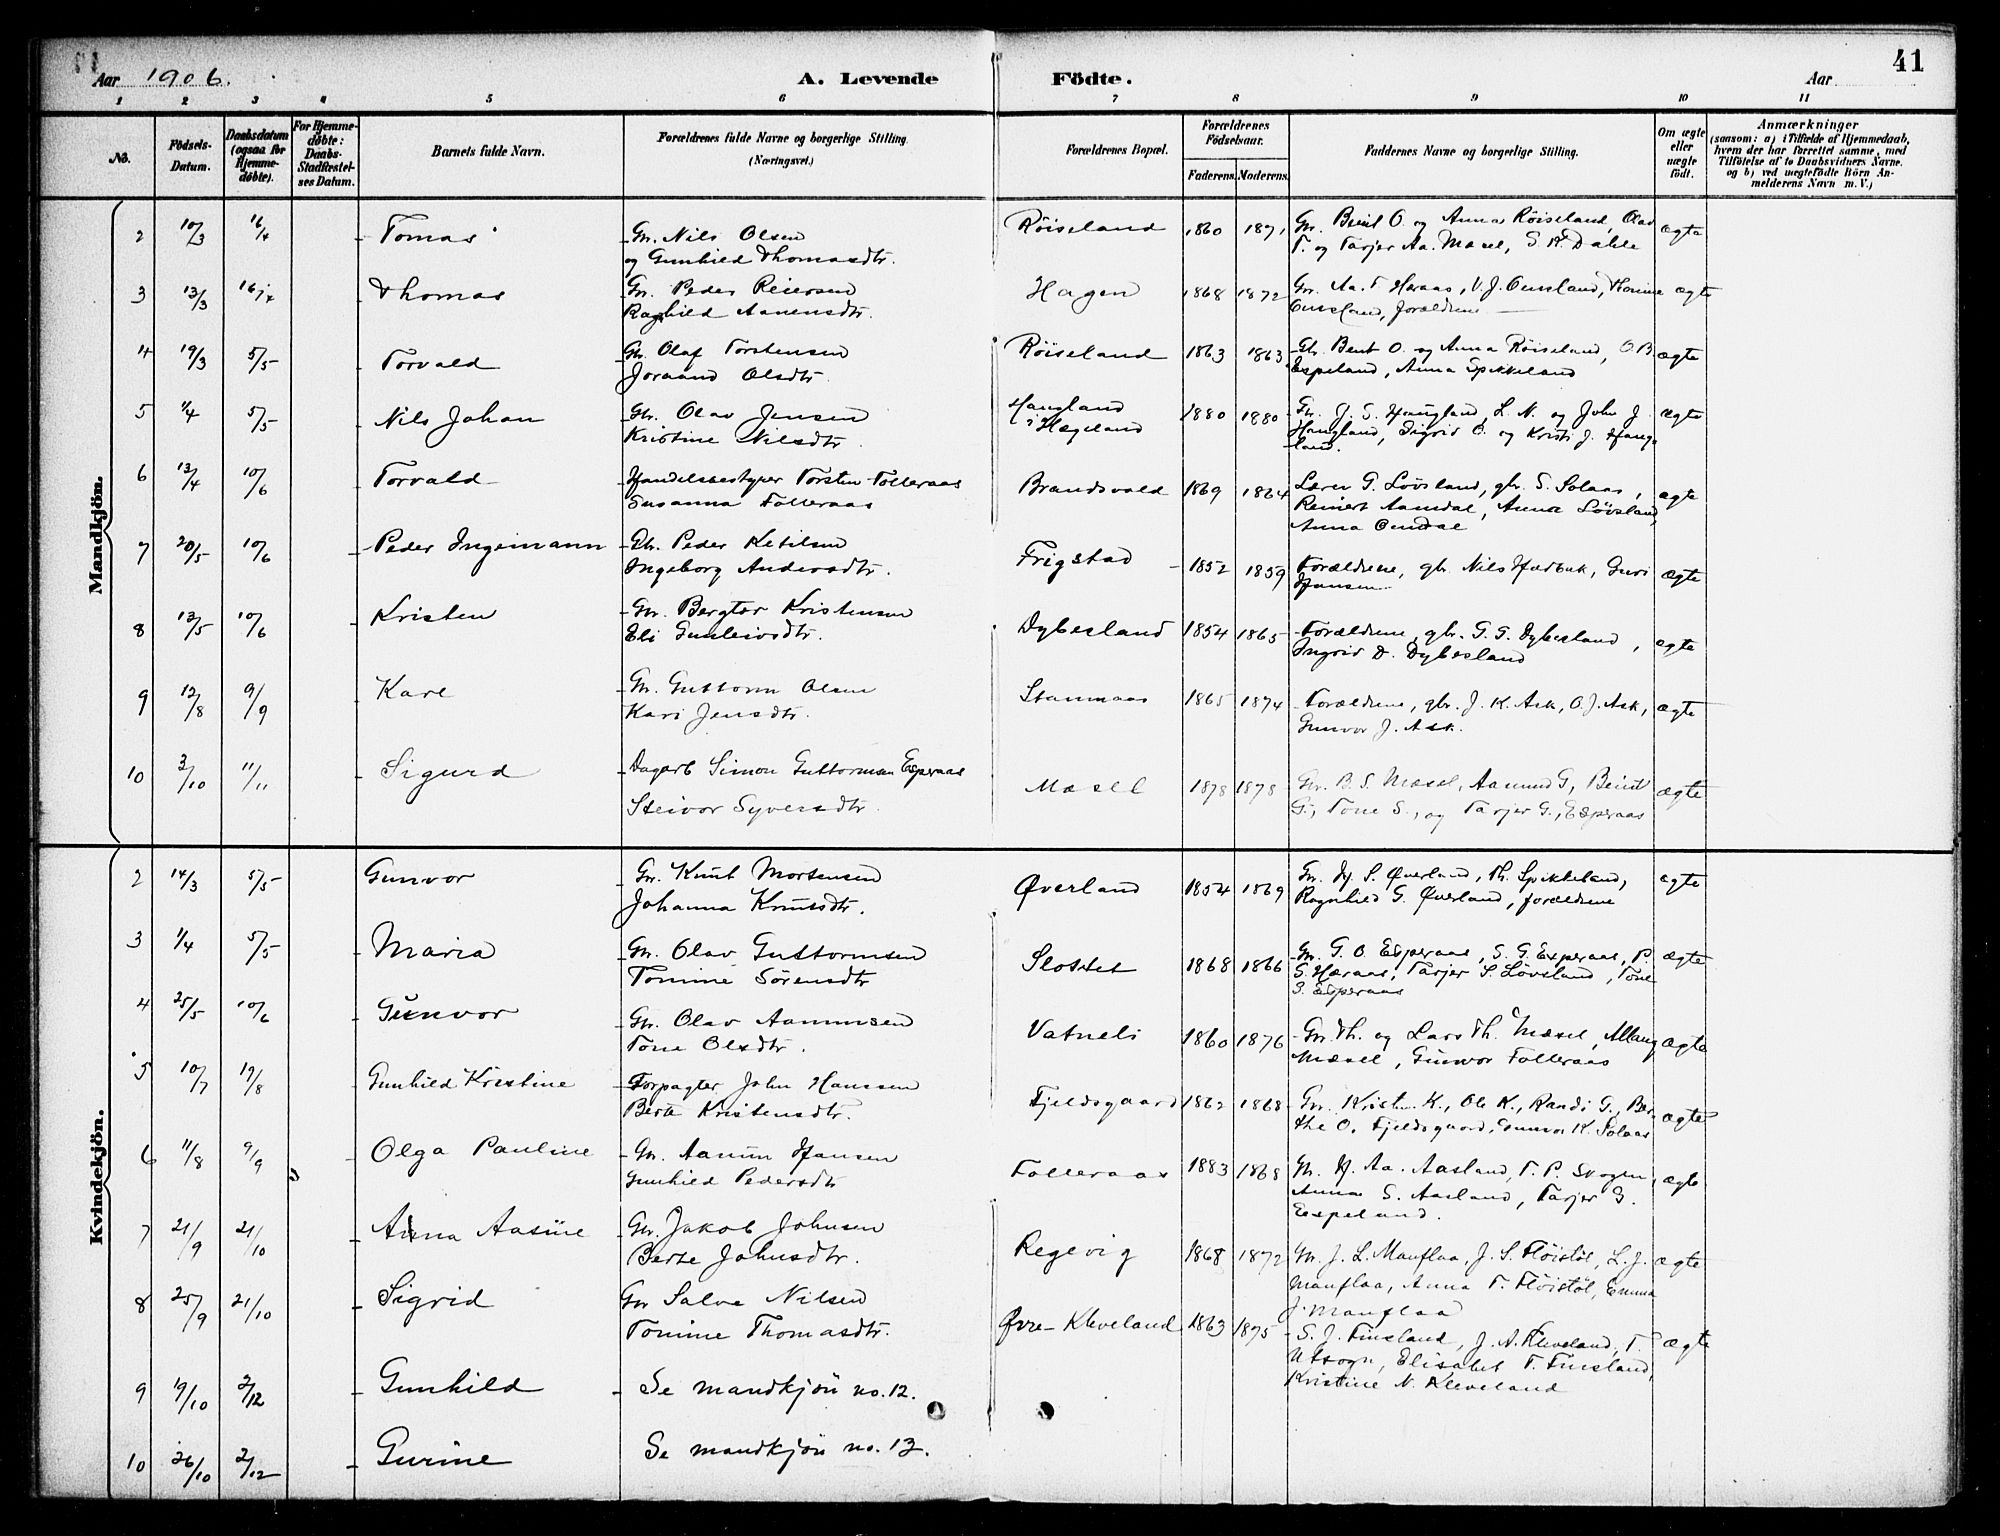 41
Aar 1906.
A. Levende Födte.
Aar
1 2 3 4 5 6 7 8 9 10 11
No.
Födsels-Datum.
Daabsdatum (ogsaa for Hjemme-døbte).
For Hjemme-døbte: Daabs-Stadfæstel-ses Datum.
Barnets fulde Navn.
Forældrenes fulde Navne og borgerlige Stilling. (Næringsvei.)
Forældrenes Bopæl.
Forældrenes Födselsaar.
Faderens. Moderens.
Faddernes Navne og borgerlige Stilling.
Om ægte eller uægte født.
Anmærkninger
(saasom: a) i Tilfælde af Hjemmedaab,
hvem der har forrettet samme, med
Tilföielse af to Daabsvidners Navne.
og b) ved uægtefödte Börn An-
melderens Navn m. V.)
Mandkjön.
2 10/3 16/4 Tomas Gr. Nils Olsen Røiseland 1860 1871 Gr. Bent O. og Anna Røiseland, Olav ægte
og Gunhild Thomasdtr. T. og Tarjer Aa. Mæsel, S. A. Dahle
3 13/3 16/4 Thomas Gr. Peder Reiersen Hagen 1868 1872 Gr. Aa. T. Haraas, V. J. Ousland, Thorine ægte
Raghild Aanensdtr. Ousland, forældrene
4 19/3 5/5 Torvald Gr. Olaf Torstensen Røiseland 1863 1863 Gr. Bent O. og Anna Røiseland, O. B. ægte
Joraand Olsdtr. Espeland, Anna Spikkeland
5 1/4 5/5 Nils Johan Gr. Olav Jensen Haugland i Hægeland 1880 1880 Gr. J. S. Haugland, L. N. og John J. ægte
Kristine Nilsdtr. Haugland, Sigrid O. og Kristi J. Haug-
land.
6 13/4 10/6 Torvald Handelsbestyrer Torsten Folleraas Brandsvold 1869 1864 Lærer G. Løvsland, gbr. S. Solaas, ægte
Susanna Folleraas Reinert Aamdal, Anna Løvsland,
Anna Omdal
7 20/5 10/6 Peder Ingemann Gbr. Peder Ketilsen Frigstad 1852 1859 Forældrene, gbr. Nils Hædbuk, Guri ægte
Ingeborg Andersdtr. Hansen
8 13/5 10/6 Kristen Gr. Bergtor Kristensen Dybesland 1854 1865 Forældrene, gbr. G. G. Dybesland, ægte
Eli Gunleivsdtr. Ingrid D. Dybesland
9 12/8 9/9 Karl Gr. Guttorm Olsen Stanmaas 1865 1874 Forældrene, gbr. J. K. Ask, O. J. Ask, ægte
Kari Jensdtr. Gunvor J. Ask.
10 3/10 11/11 Sigurd Dagarb. Simon Guttormsen Esperaas Mæsel 1878 1878 Gr. B. S. Mæsel, Aamund G., Beint ægte
Steivor Syversdtr. G., Tone S., og Tarjer G., Esperaas
Kvindekjön.
2 14/3 5/5 Gunvor Gr. Knut Mortensen Øverland 1854 1869 Gr. H. S. Øverland, Th. Spikkeland, ægte
Johanna Knutsdtr. Ragnhild G. Øverland, forældrene
3 1/4 5/5 Maria Gr. Olav Guttormsen Slottet 1868 1866 Gr. G. O. Esperaas, S. G. Esperaas, P. ægte
Tomine Sørensdtr S. Haraas, Tarjer S. Løvsland, Tone
S. Esperaas
4 25/5 10/6 Gunvor Gr. Olav Aamunsen Vatneli 1860 1876 Gr. Th. og Lars Th. Mæsel, Allaug ægte
Tone Olsdtr. Mæsel, Gunvor Folleraas
5 10/7 19/8 Gunhild Kristine Forpagter John Hanssen Fjeldsgaard 1862 1868 Gr. Kristen K., Ole K., Randi G., Ber- ægte
Berte Kristensdtr. the O. Fjeldsgaard, Gunvor K. Solaas
6 11/8 9/9 Olga Pauline Gr. Aanun Hansen Folleraas 1883 1868 Gr. H. Aa. Aasland, T. P. Skogen, ægte
Gunhild Pedersdtr Anna S. Aasland, Tarjer G.
Espeland.
7 21/9 21/10 Anna Aasine Gr. Jakob Johnsen Regevig 1868 1872 Gr. J. L. Manflaa, J. S. Fløistøl, L. J. ægte
Berte Johnsdtr. Manflaa, Anna T. Fløistøl, Emma
J. Manflaa
8 25/9 21/10 Sigrid Gr Salve Nilsen Øvre-Kleveland 1863 1875 S. J. Finsland, J. A. Kleveland, T. ægte
Tomine Thomasdtr. Utsogn, Elisabet T. Finsland,
Kristine N. Kleveland
9 19/10 2/12 Gunhild Se mandkjøn no. 12.
10 26/10 2/12 Gurine Se mandkjøn no. 13.